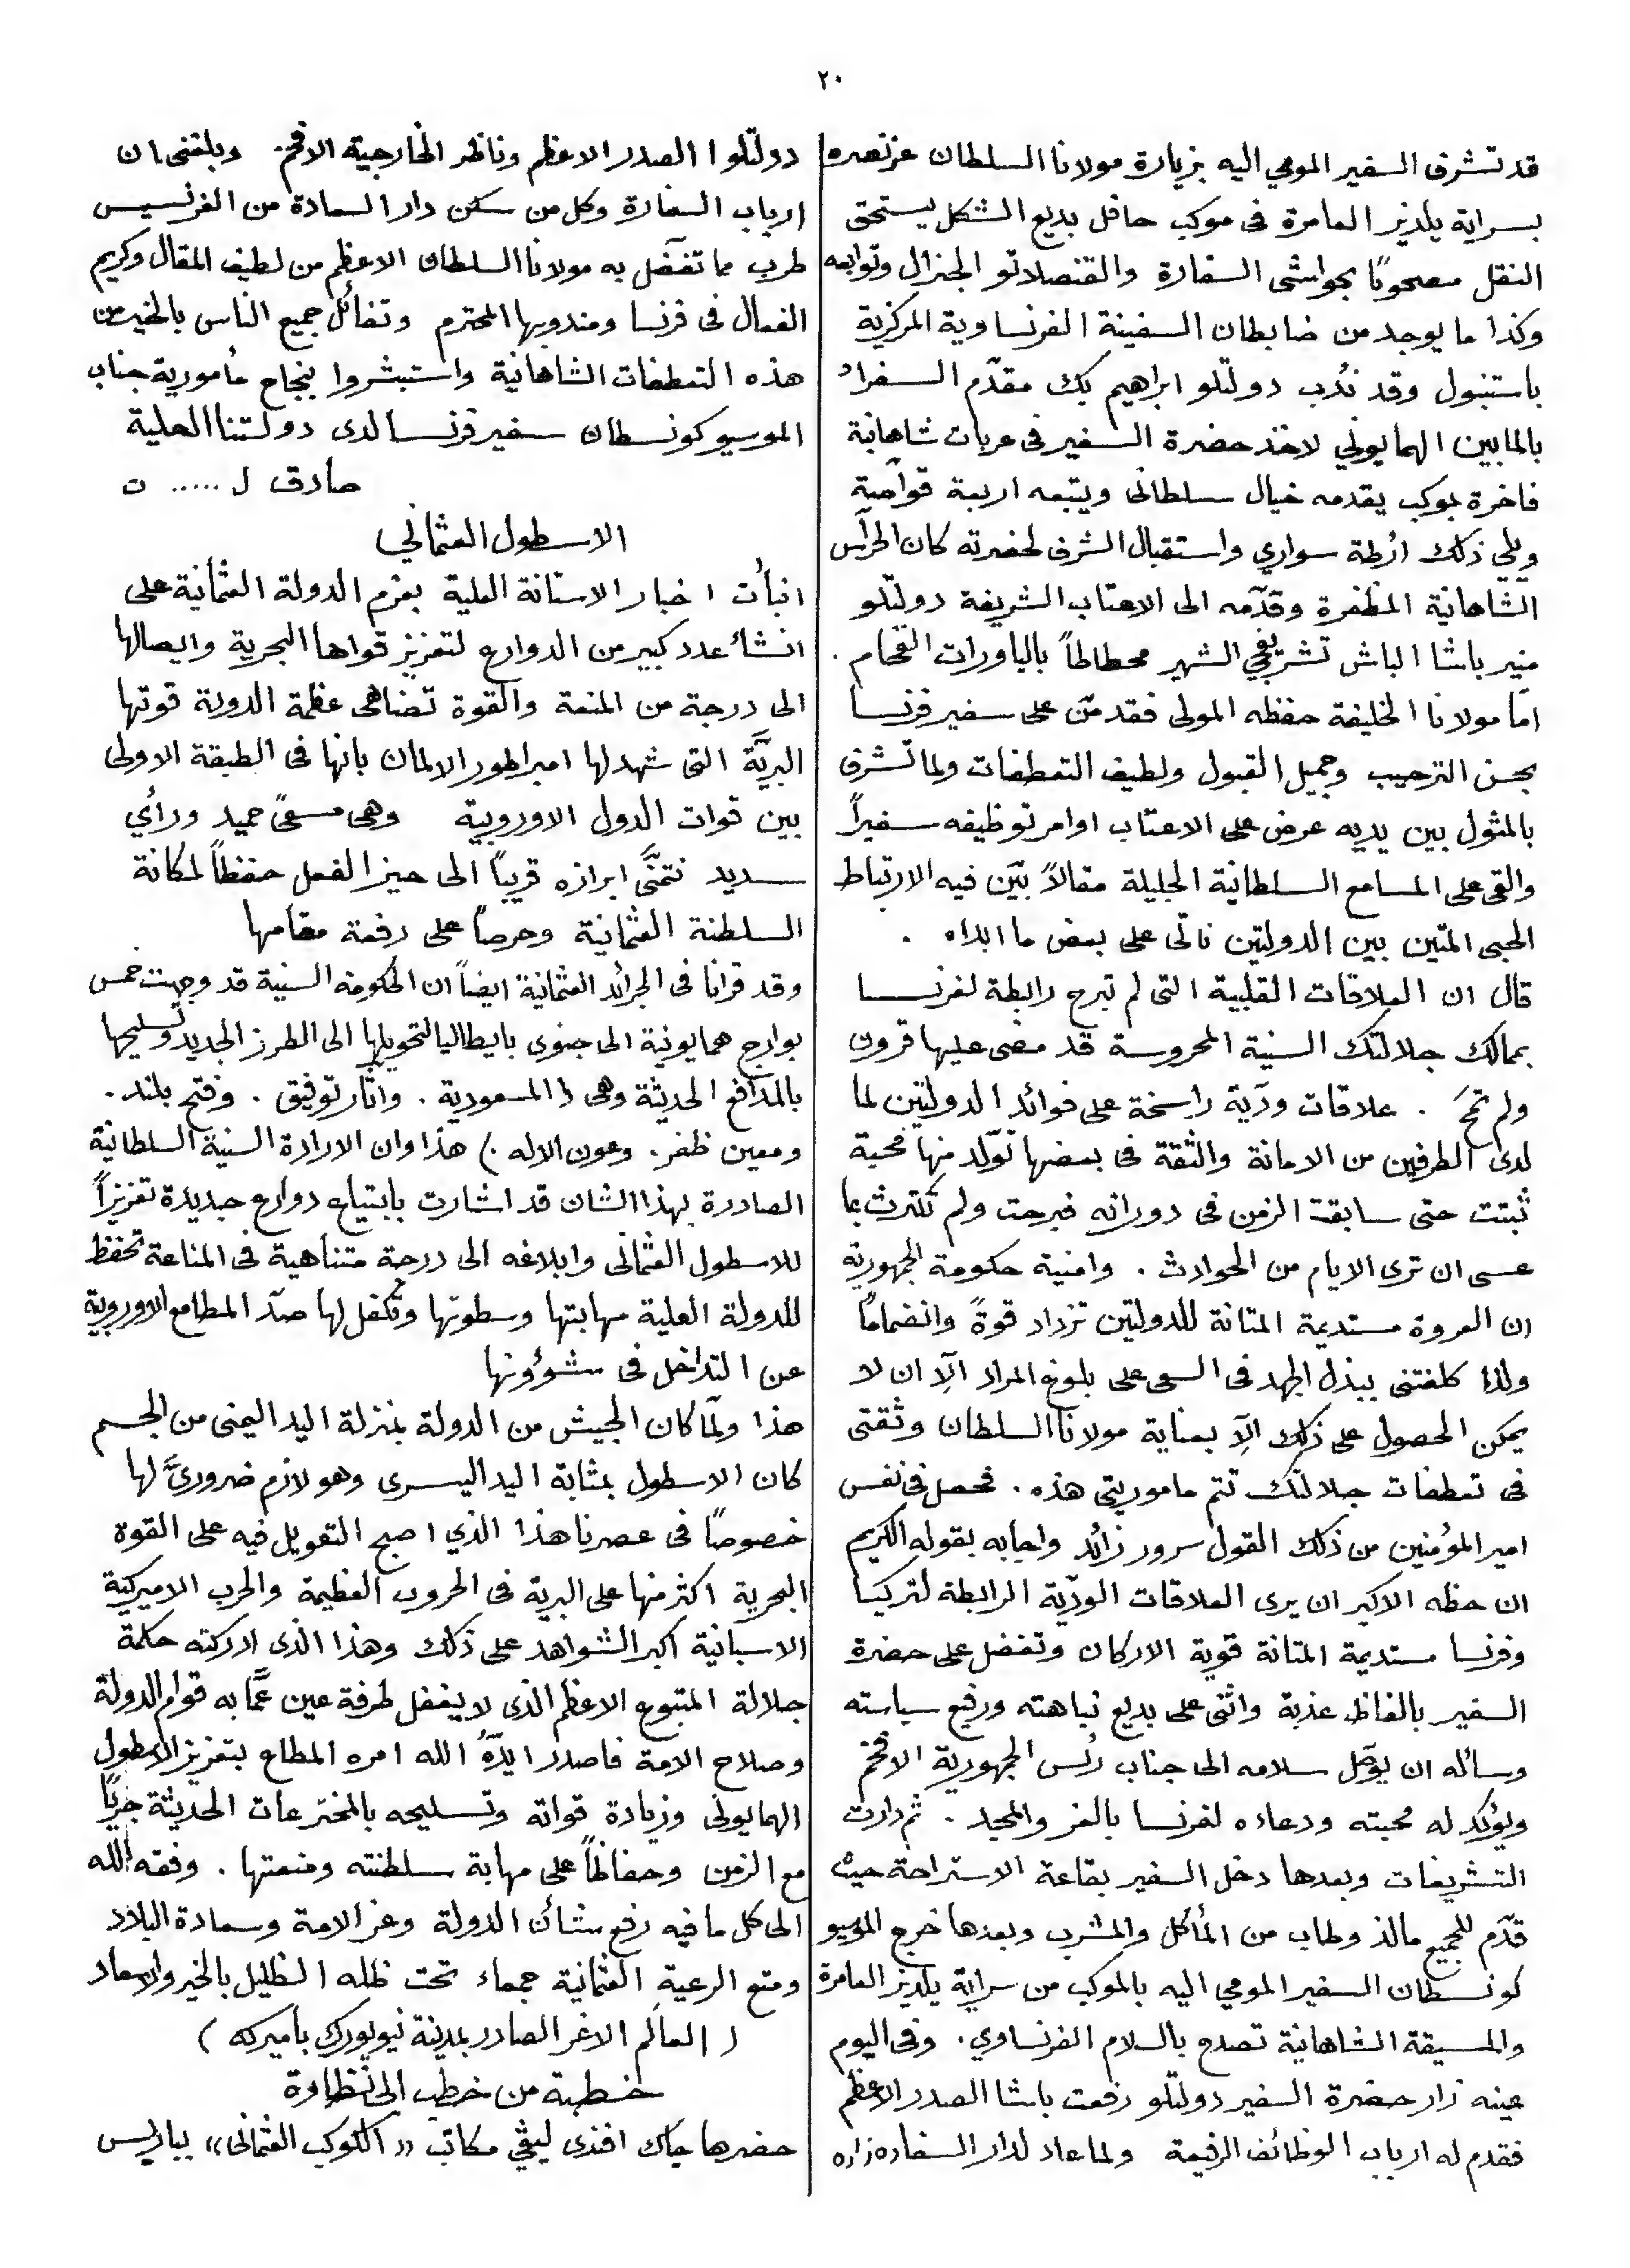 ٢٠
قد تشرف السفير المومي اليه بزيارة مولانا السلطان عز نصره
بسراية يلديز العامرة فى موكب حافل بديع الشكل يستحق
النقل مصحوبًا بحواشى السفارة والقنصلاتو الجنرال وتوابعه
وكذا ما يوجد من ضابطان السفينة الفرنساوية المركزية
باستنبول وقد نُدب دولتلو ابراهيم بك مقدّم السفراء
بالمابين الهمايوني لاخذ حضرة السفير فى عربات شاهانية
فاخرة بموكب يقدمه خيال سلطانى ويتبعه اربعة قوآصة
ويلي ذلك ارُطة سواري واستقبال الشرف لحضرته كان الحرّاس
الشاهانية المظفرة وقدّمه الى الاعتاب الشريفة دولتلو
منير باشا الباش تشريفجي الشهير محطاطاً بالياورات الفخام .
امّا مولانا الخليفة حفظه المولى فقد منّ على سفير فرنسا
بحسن الترحيب وجميل القبول ولطيف التعطفات ولما تشرف
بالمثول بين يديه عرض على الاعتاب اوامر توظيفه سفيراً
والقى على المسامع السلطانية الجليلة مقالاً بيّن فيه الارتباط
الحبى المتين بين الدولتين ناتى على بعض ما ابداه .
قال ان العلاقات القلبية التى لم تبرح رابطة لفرنسا
بممالك جلالتك السنية المحروسة قد مضى عليها قرون
ولم تمحَ . علاقات ودّية راسخة على فوائد الدولتين لما
لدى الطرفين من الامانة والثقة فى بعضها تولّد منها محبة
ثبتت حتى سابقت الزمن فى دورانه فبرحت ولم تكترث بما
عسى ان ترى الايام من الحوادث . وامنية حكومة الجمهورية
ان العروة مستديمة المتانة للدولتين تزداد قوةً وانضمامًا
ولذا كلفتنى ببذل الجهد فى السعى على بلوغ المراد الّا ان لا
يمكن الحصول على ذلك الّا بعناية مولانا السلطان وثقتى
فى تعطفات جلالتك تتم ماموريتى هذه . فحصل فى نفس
امير المؤمنين من ذلك القول سرور زائد واجابه بقوله الكريم
ان حظه الاكبر ان يرى العلاقات الودّية الرابطة لتركيا
وفرنسا مستديمة المتانة قوية الاركان وتفضل على حضرة
السفير بالفاظ عذبة واثنى على بديع نباهته ورفيع سياسته
وسأله ان يوصّل سلامه الى جناب رئس الجمهورية الافخم
ويؤكد له محبته ودعاءه لفرنسا بالعز والمجد . ثم دارت
التشريفات وبعدها دخل السفير بقاعة الاستراحة حيث
قدّم للجميع مالذ وطاب من المأكل والمشرب وبعدها خرج الموسيو
كونسطان السفير المومي اليه بالموكب من سراية يلديز العامرة
والمسيقة الشاهانية تصدح بالسلام الفرنساوي . وفى اليوم
عينه زار حضرة السفير دولتلو رفعت باشا الصدر الاعظم
فقدم له ارباب الوظائف الرفيعة ولما عاد لدار السفاره زاره
دولتلوا الصدر الاعظم وناظر الخارجية الافخم . وبلغنى ان
ارباب السفارة وكل من سكن دار السعادة من الفرنسيس
طرب مما تفضّل به مولانا السلطان الاعظم من لطيف المقال وكريم
الفعال فى فرنسا ومندوبها المحترم وتفائل جميع الناس بالخير من
هذه التعطفات الشاهانية واستبشروا بنجاح مأمورية جناب
الموسيو كونسطان سفير فرنسا لدى دولتنا العلية
صادق ل ..... ن
الاسطول العثماني
انبأت اخبار الاستانة العلية بعزم الدولة العثمانية على
انشاء عدد كبير من الدوارع لتعزيز قواها البحرية وايصالها
الى درجة من المنعة والقوة تضاهى عظمة الدولة قوتها
البريَّة التى شهد لها امبراطور الالمان بانها فى الطبقة الاولى
بين قوات الدول الاوروبية وهى مسعىً حميد ورأي
سديد نتمنَّى ابرازه قريبًا الى حيز الفعل حفظاً لمكانة
السلطنة العثمانية وحرصاً على رفعة مقامها
وقد قرانا فى الجرائد العثمانية ايضاً ان الحكومة السنية قد وجهت خمس
بوارج همايونية الى جنوى بايطاليا لتحويلها الى الطرز الجديد وتسليحها
بالمدافع الحديثة وهى ( المسعودية . واثار توفيق . وفتح بلند .
ومعين ظفر . وعون الاله . ) هذا وان الارادة السنية السلطانية
الصادرة بهذا الشان قد اشارت بابتياع دوارع جديدة تعزيزاً
للاسطول العثمانى وابلاغه الى درجة متناهية فى المناعة تحفظ
للدولة العلية مهابتها وسطوتها وتكفل لها صدّ المطامع الاوروبية
عن التداخل فى شؤونها
هذا ولمّا كان الجيش من الدولة بمنزلة اليد اليمنى من الجسم
كان الاسطول بمثابة اليد اليسرى وهو لازم ضروريَّ لها
خصوصًا فى عصرنا هذا الذي اصبح التعويل فيه على القوة
البحرية اكثر منها على البرية فى الحروب العظيمة والحرب الاميركية
الاسبانية اكبر الشواهد على ذلك وهذا الذى ادركته حكمة
جلالة المتبوع الاعظم الذى لا يغفل طرفة عين عمَّا به قوام الدولة
وصلاح الامة فاصدر ايدّهُ الله امره المطاع بتعزيز الاسطول
الهمايونى وزيادة قواته وتسليحه بالمخترعات الحديثة جريًا
مع الزمن وحفاظاً على مهابة سلطنته ومنعتها . وفقه الله
الى كل ما فيه رفع شأن الدولة وعز الامة وسعادة البلاد
ومتع الرعية العثمانية جمعاء تحت ظله الظليل بالخير والاسعاد
( العالم الاغر الصادر بمدينة نيويورك باميركه )
خطبة من خطب ابى نظارة
حضرها جاك افندى ليڤي مكاتب «الكوكب العثمانى» بباريس